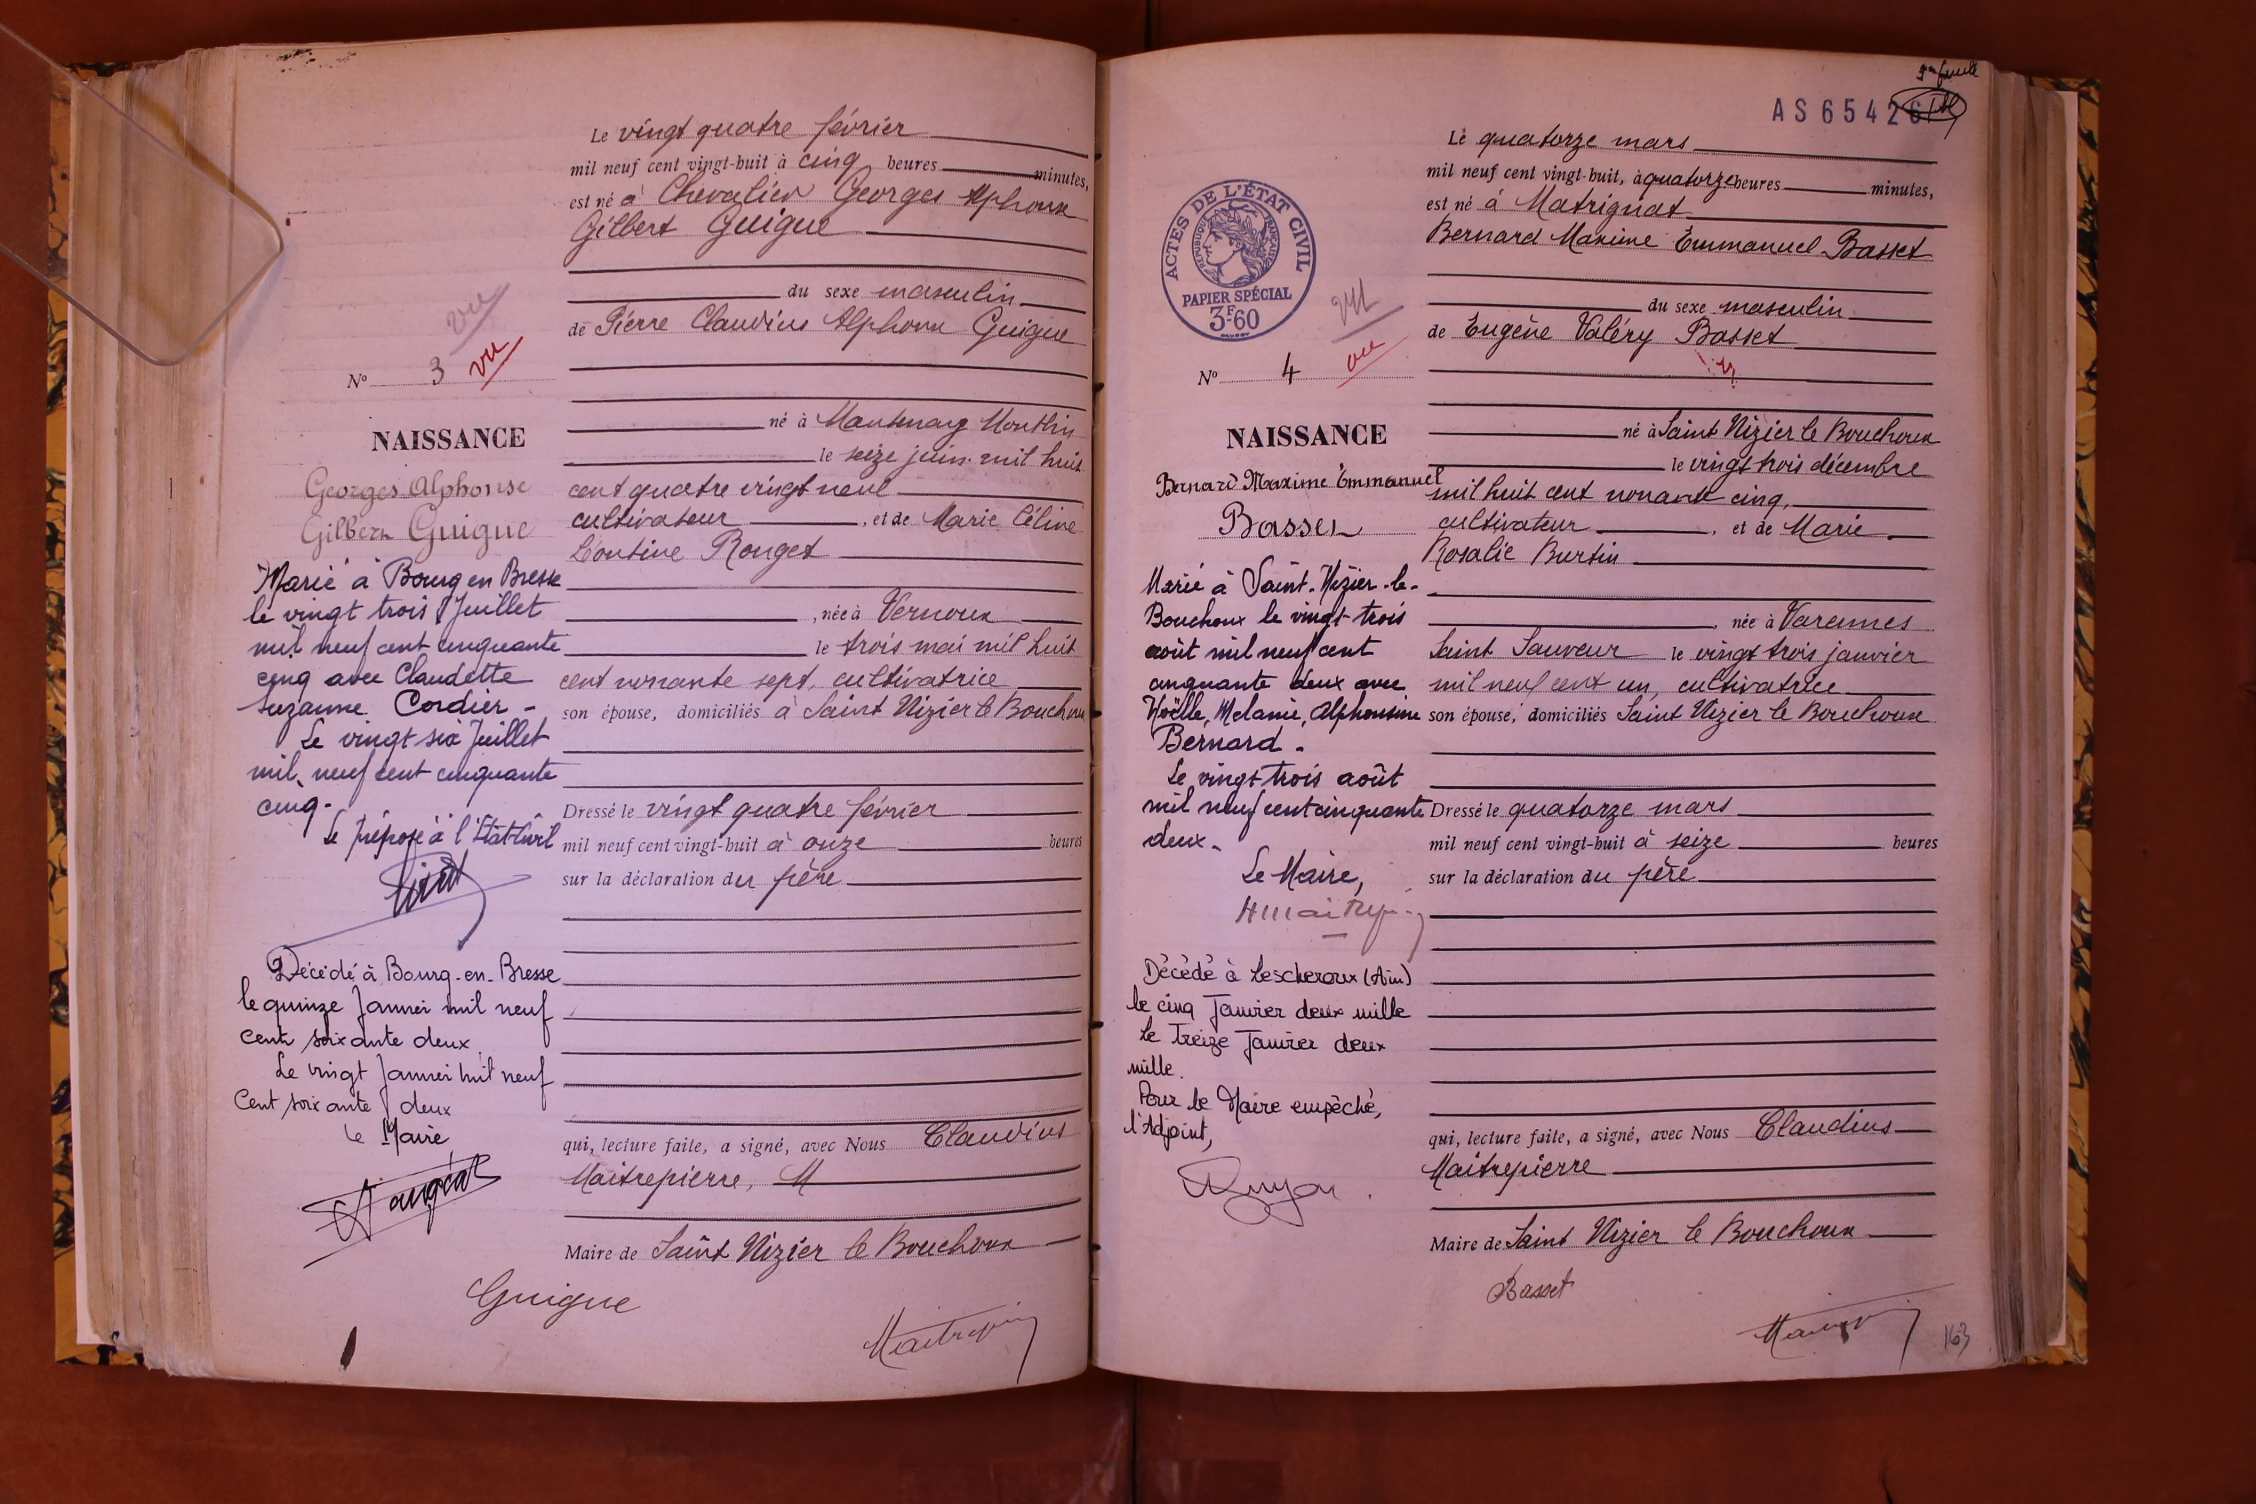 Le vingt quatre février
mil neuf cent vingt-huit à cinq heures minutes,
est né à Chevalier Georges Alphonse
Gilbert Guigue
du sexe masculin
de Pierre Claudius Alphonse Guigue
vu
N° 3 vu
NAISSANCE
né à Mantenay Montlin
le seize juin mil huit
cent quatre vingt neuf
cultivateur , et de Marie Céline
Léontine Rouget
, née à Vernoux
le trois mai mil huit
cent nonante sept, cultivatrice
son épouse, domiciliés à Saint Nizier le Bouchoux
Dressé le vingt quatre février
mil neuf cent vingt-huit à onze heures
sur la déclaration du père
qui, lecture faite, a signé, avec Nous Claudius
Maitrepierre, M
Maire de Saint Nizier le Bouchoux
Guigue
Georges Alphonse
Gilbert Guigue
Marié à Bourg en Bresse
le vingt trois Juillet
mil neuf cent cinquante
cinq avec Claudette
Suzanne Cordier -
Le vingt six Juillet
mil neuf cent cinquante
cinq.
Le préposé à l'Etat-Civil
Décédé à Bourg-en-Bresse
le quinze Janvier mil neuf
cent soixante deux
Le vingt Janvier mil neuf
Cent soixante deux
Le Maire
AS 6542
Le quatorze mars
mil neuf cent vingt-huit, à quatorze heures minutes,
est né à Matrignat
Bernard Maxime Emmanuel Basset
du sexe masculin
de Eugène Valéry Basset
ACTES DE L'ÉTAT CIVIL
RÉPUBLIQUE FRANÇAISE
PAPIER SPÉCIAL
3F-60
vu
N° 4 vu
NAISSANCE
né à Saint Nizier le Bouchoux
le vingt trois décembre
mil huit cent nonante cinq,
cultivateur , et de Marie
Rosalie Burtin
, née à Varennes
Saint Sauveur le vingt trois janvier
mil neuf cent un, cultivatrice
son épouse, domiciliés Saint Nizier le Bouchoux
Dressé le quatorze mars
mil neuf cent vingt-huit à seize heures
sur la déclaration du père
qui, lecture faite, a signé, avec Nous Claudius
Maitrepierre
Maire de Saint Nizier le Bouchoux
Basset
163
Bernard Maxime Emmanuel
Basset
Marié à Saint-Nizier-le-
Bouchoux le vingt-trois
août mil neuf cent
cinquante deux avec
Noëlle, Mélanie, Alphonsine
Bernard.
Le vingt-trois août
mil neuf cent cinquante
deux.
Le Maire,
Décédé à Lescheroux (Ain)
le cinq Janvier deux mille
Le Treize Janvier deux
mille.
Pour le Maire empêché,
l'Adjoint,